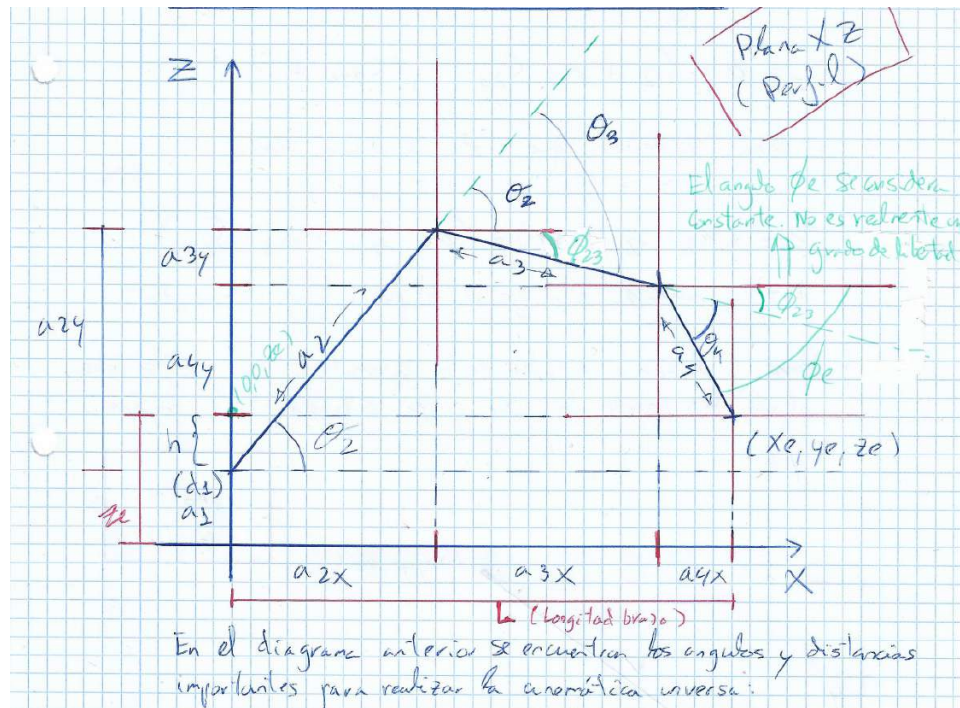 Plano XZ
(Perfil)
Z
θ3
θ2
El angulo φe se considera
constante. No es realmente un
grado de libertad
a3y
φ23
a3
a2y
a2
φ23
a4y
(0,0,ze)
θ4
a4
φe
h
θ2
(xe, ye, ze)
(d1)
a1
ze
a2x
a3x
a4x
X
L (Longitud brazo)
En el diagrama anterior se encuentran los angulos y distancias
importantes para realizar la cinemática inversa: